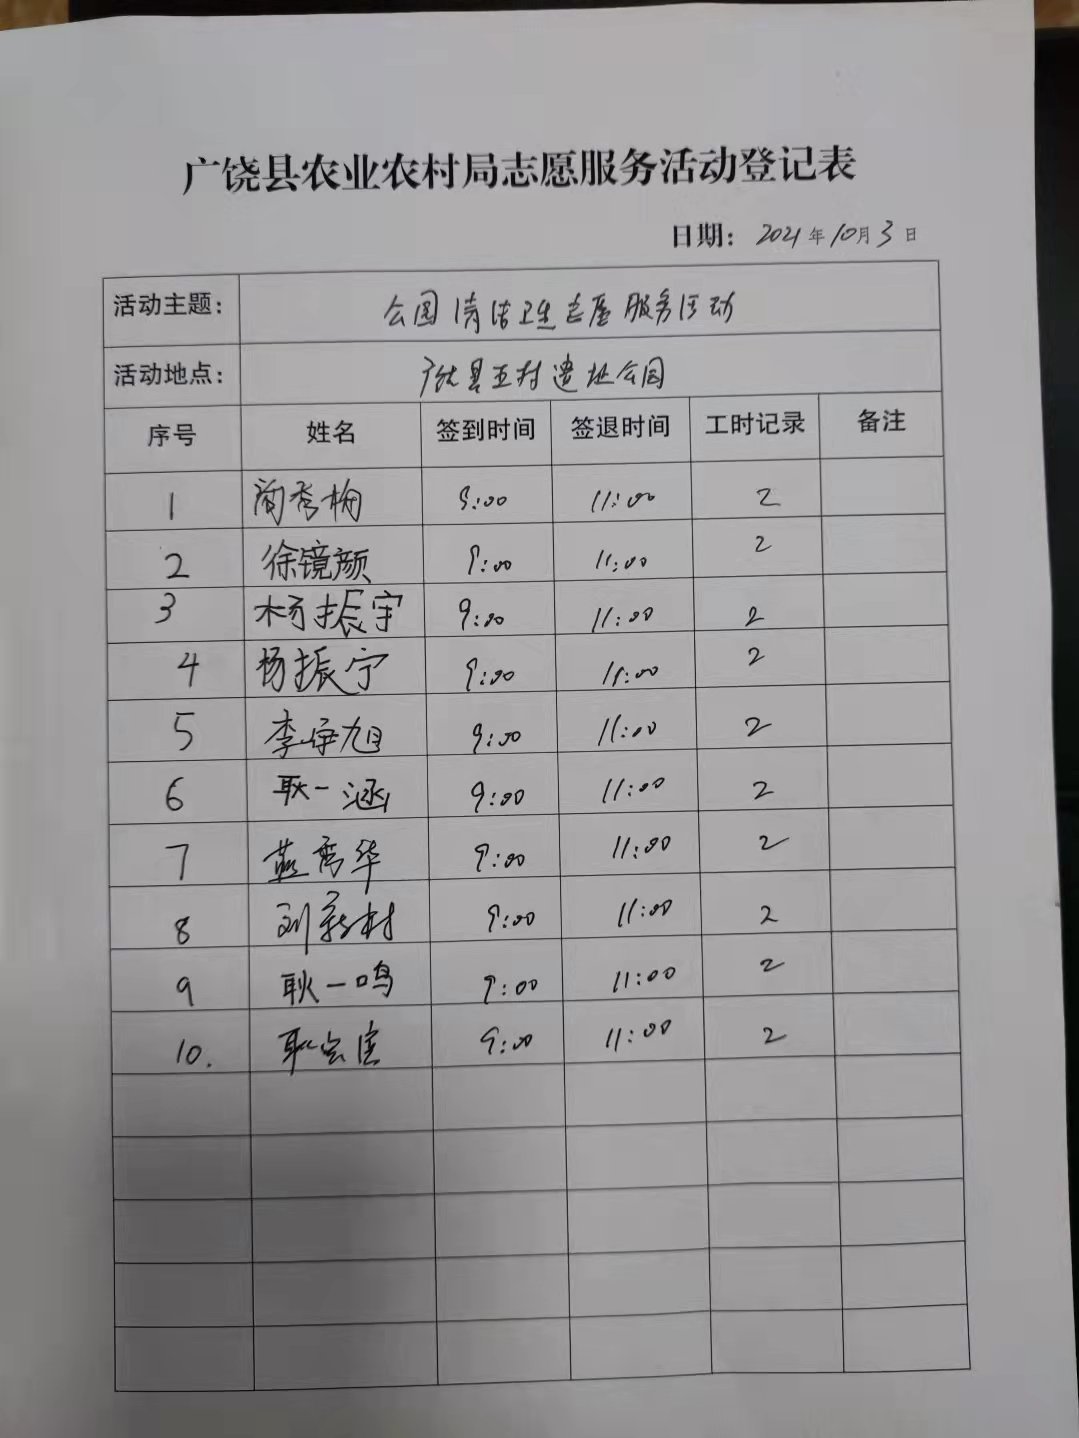 广饶县农业农村局志愿服务活动登记表
日期: 2021年10月3日
活动主题: 公园清洁卫生志愿服务活动
活动地点: 广饶县五村遗址公园
序号 姓名 签到时间 签退时间 工时记录 备注
1 秀梅 9:00 11:00 2
2 徐镜颜 9:00 11:00 2
3 杨振宇 9:00 11:00 2
4 杨振宁 9:00 11:00 2
5 李 旭 9:00 11:00 2
6 耿一涵 9:00 11:00 2
7 秀华 9:00 11:00 2
8 刘新村 9:00 11:00 2
9 耿一鸣 9:00 11:00 2
10. 耿 9:00 11:00 2